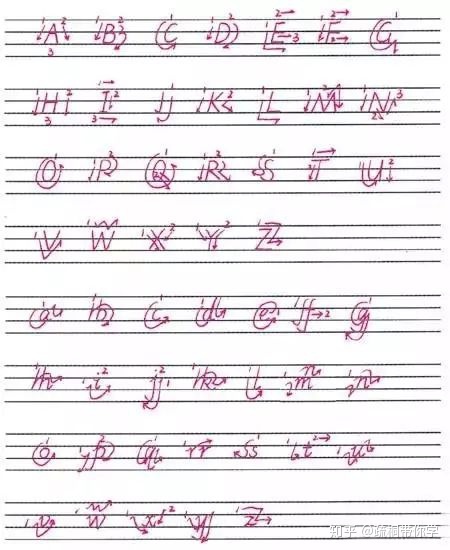 A B C D E F G
H I J K L M N
O P Q R S T U
V W X Y Z
a b c d e f g
h i j k l m n
o p q r s t u
v w x y z
知乎 @疏桐带你学